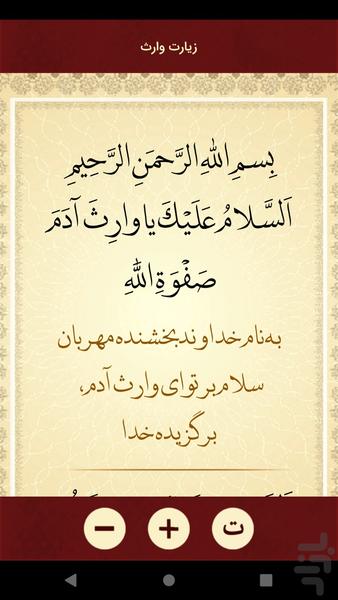 زیارت وارث
بِسمِ اللهِ الرَّحمَنِ الرَّحِیمِ
اَلسَّلامُ عَلَیْكَ یا وارِثَ آدَمَ
صَفْوَةِ اللهِ
به نام خداوند بخشنده مهربان
سلام بر تو ای وارث آدم،
برگزیده خدا
ت
بازار